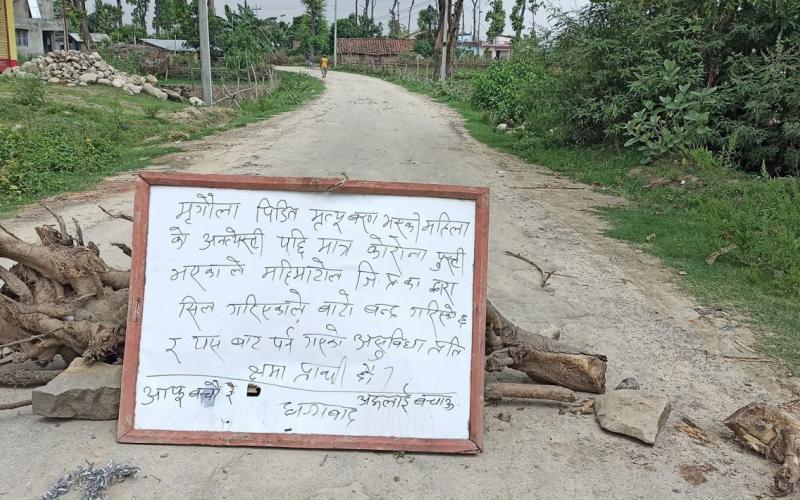 मृगौला पिडित मृत्यू वरण भएकी महिला
को अन्त्येस्टी पछि मात्र कोरोना पुस्टी
भएकाले महिमाटोल जि प्र का द्वारा
सिल गरिएकाले बाटो बन्द गरिएको छ
र यस बाट पर्न गएको असुविधा प्रति
क्षमा प्रार्थी छौं।
आफू बचौं र अरूलाई बचाऊ
धन्यवाद